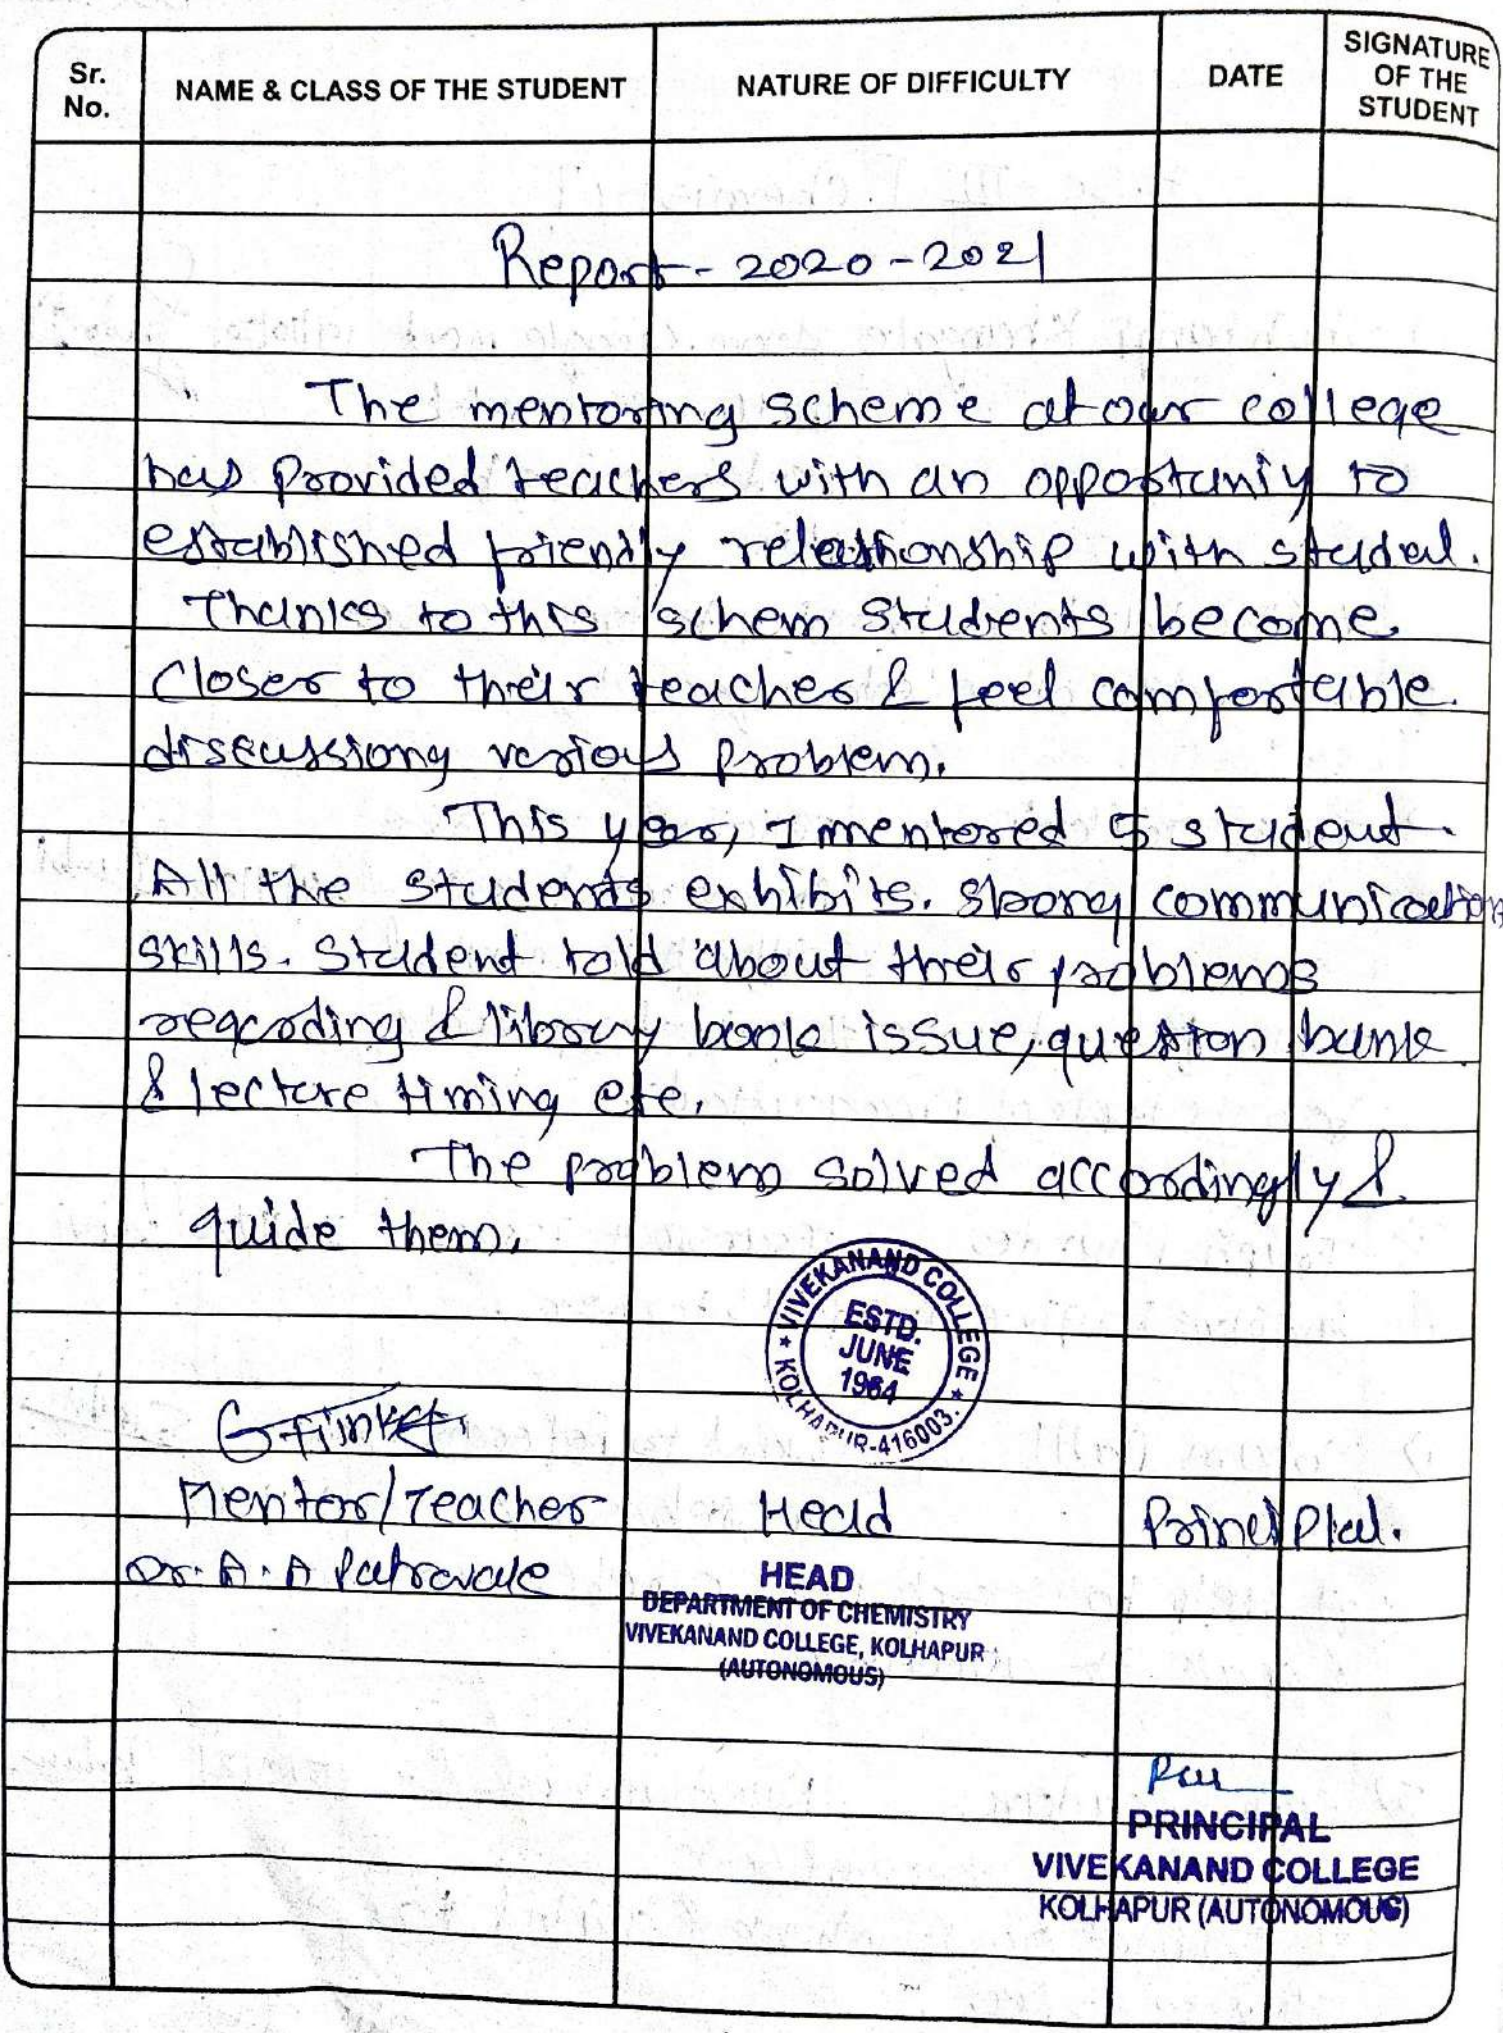 Sr. No.
NAME & CLASS OF THE STUDENT
NATURE OF DIFFICULTY
DATE
SIGNATURE OF THE STUDENT
Report - 2020-2021
The mentoring scheme at our college
has provided teachers with an opportuniy to
established friendly relationship with studal.
Thanks to this schem students become
closer to their teacher & feel comfortable.
discussiong various problem.
This year, I mentored 5 student.
All the students exhibits. strong communication
skills. Student told about their problems
regarding & library book issue, question bank
& lecture timing etc.
The problem solved accordingly &
guide them.
VIVEKANAND COLLEGE
ESTD.
JUNE
1964
KOLHAPUR-416003.
Mentor/Teacher
Head
Principlal.
Dr. A. A Patravale
HEAD
DEPARTMENT OF CHEMISTRY
VIVEKANAND COLLEGE, KOLHAPUR
(AUTONOMOUS)
PRINCIPAL
VIVEKANAND COLLEGE
KOLHAPUR (AUTONOMOUS)